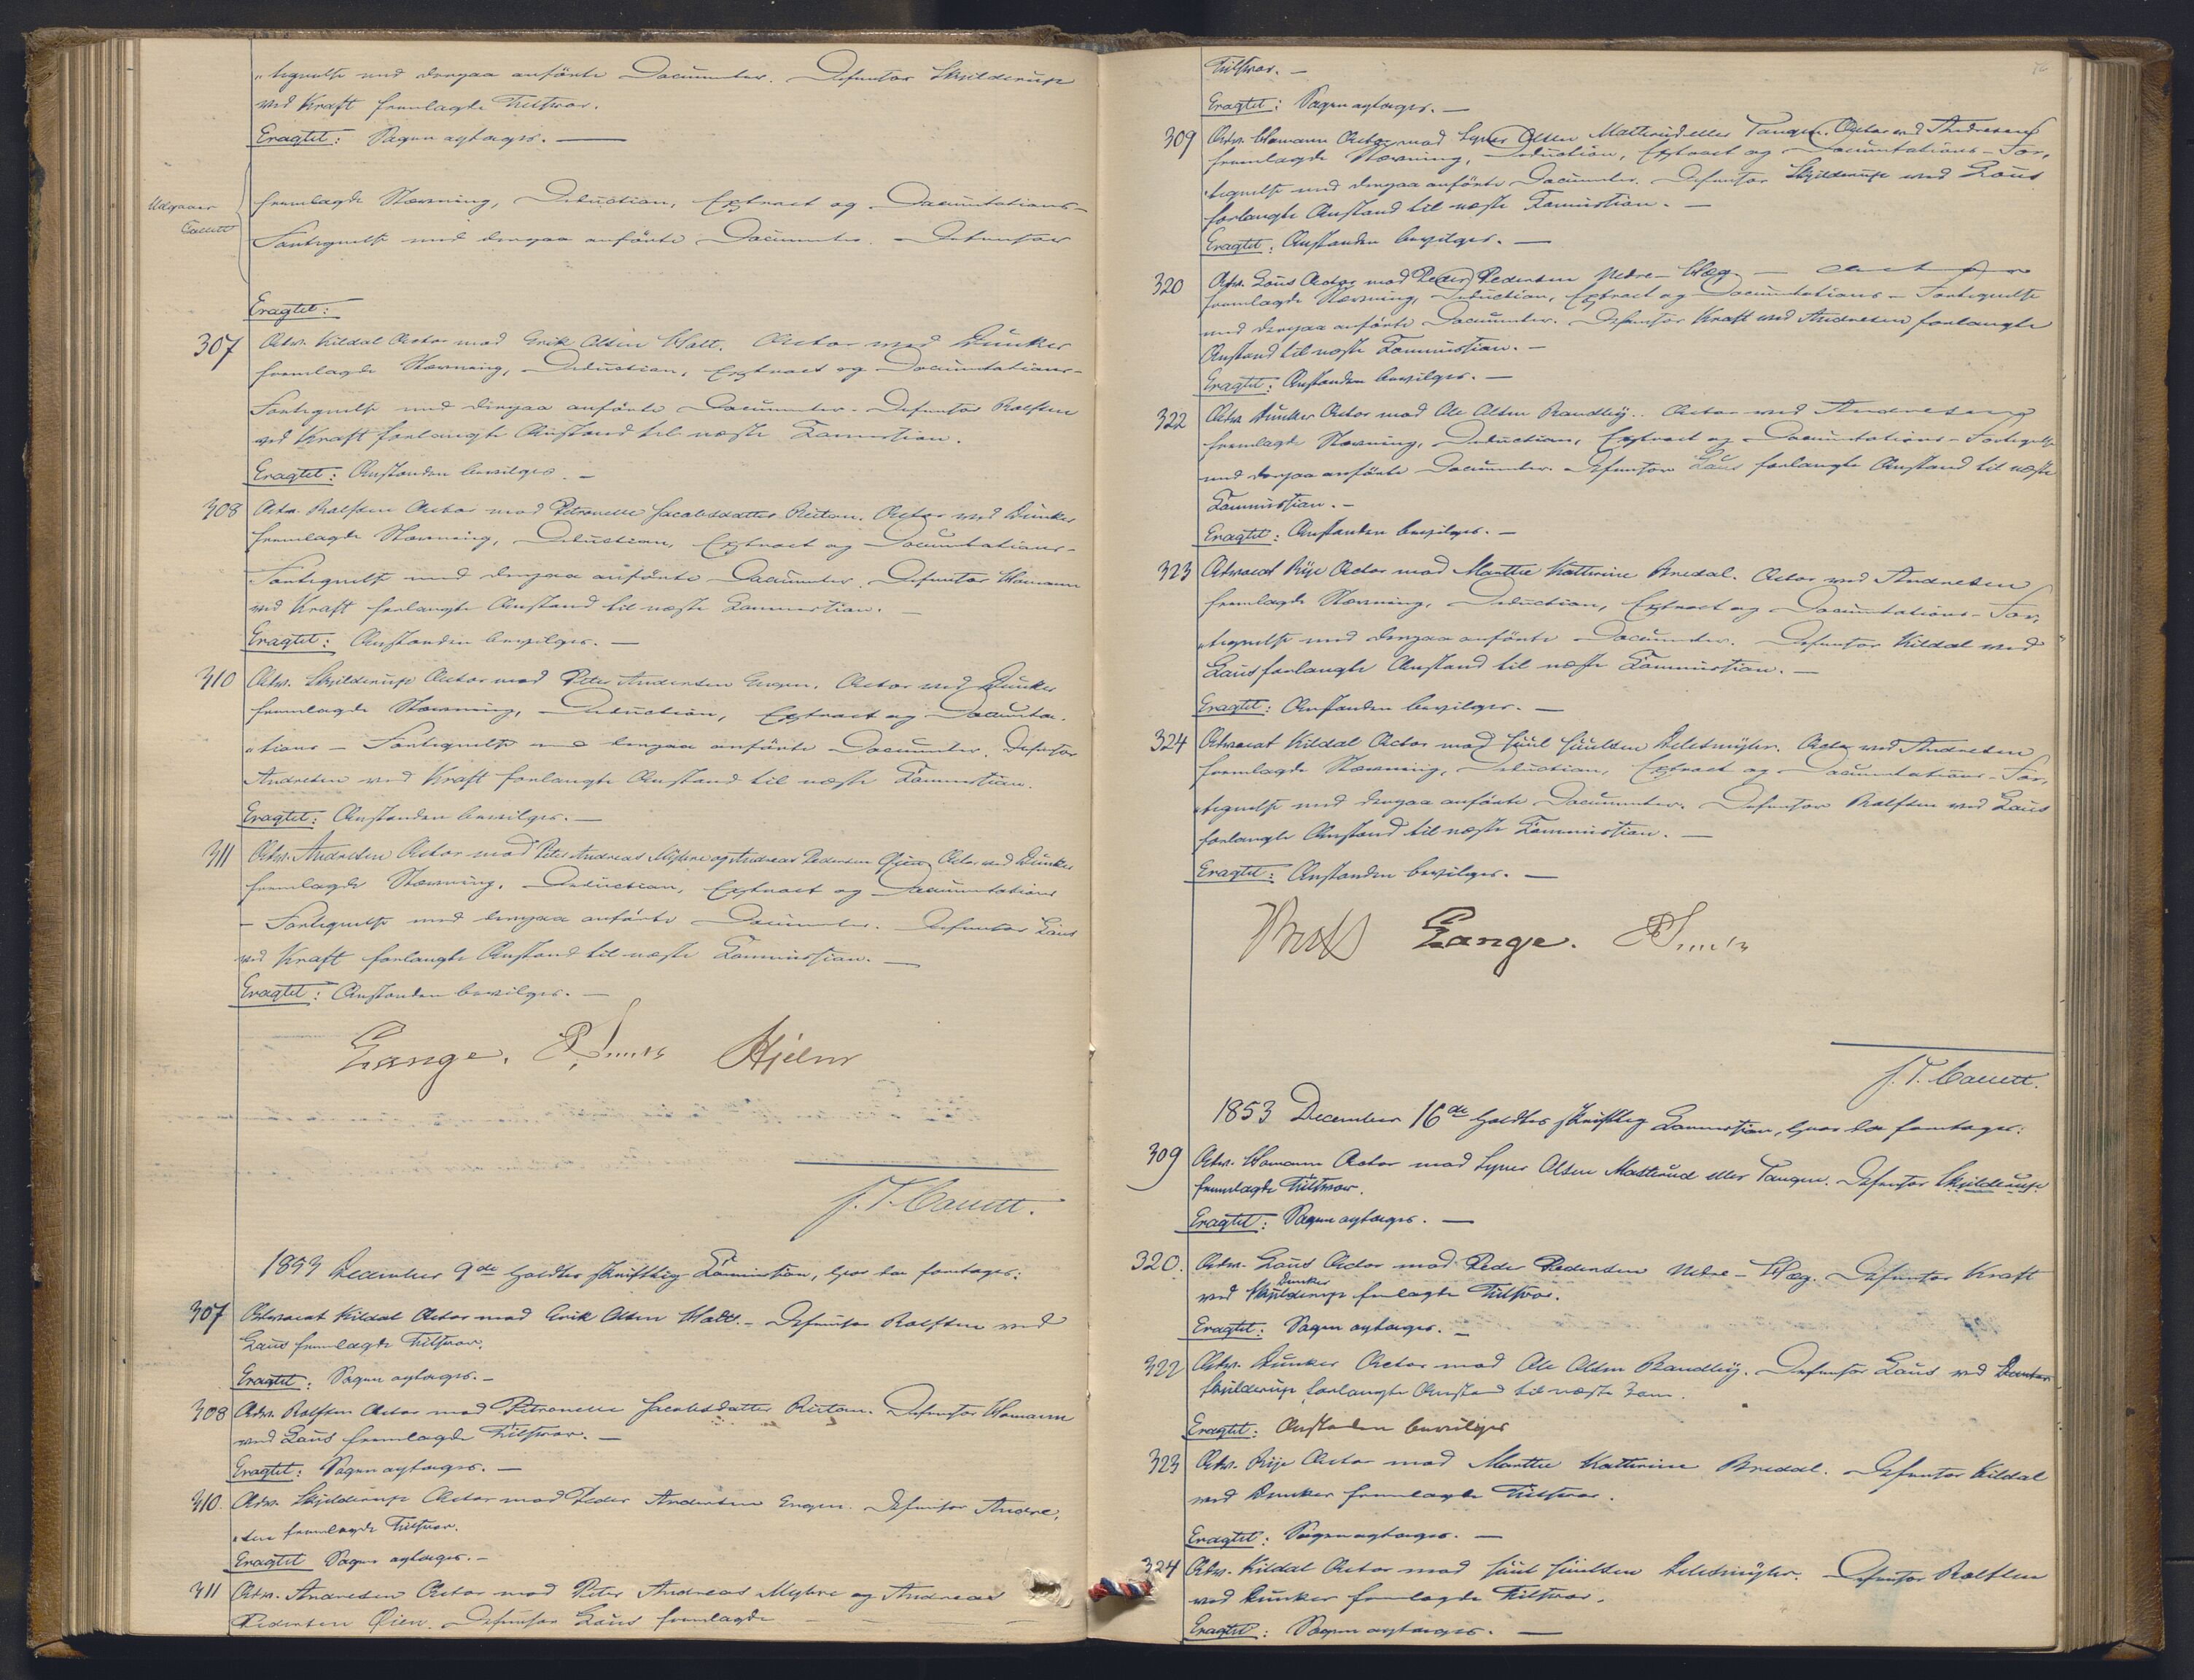 "tegnelse med derpaa anførte Documenter. Defensor Skjilderup
ved Kraft fremlagde Tilsvar.
Eragtet: Sagen optages. —
Udgaaer
Cauett
fremlagde Stævning, Deduction, Extract og Documentations-
Fortegnelse med derpaa anførte Documenter. Defensor
Eragtet:
307 Adv. Kildal Actor mod Erik Olsen Hall. Actor ved Dunker
fremlagde Stævning, Deduction, Extract og Documentations-
Fortegnelse med derpaa anførte Documenter. Defensor Rolfsen
ved Kraft forlangte Anstand til næste Samersion.
Eragtet: Anstanden bevilges. —
308 Adv. Rolfsen Actor mod Petronelle Jacobsdatter Reitan. Actor ved Dunker
fremlagde Stævning, Deduction, Extract og Documentations-
Fortegnelse med derpaa anførte Documenter. Defensor Homann
ved Kraft forlangte Anstand til næste —
Eragtet: Anstanden bevilges. —
310 Adv. Skjilderup Actor mod Peter Andersen Engen. Actor ved Dunker
fremlagde Stævning, Deduction, Extract og Documenta-
"tions - Fortegnelse med derpaa anførte Documenter. Defensor
Andresen ved Kraft forlangte Anstand til næste
Eragtet: Anstanden bevilges. —
311 Adv. Andresen Actor mod Peter Andreas Myhre og Andreas Pedersen Øien Actor ved Dunker
fremlagde Stævning, Deduction, Extract og Documentations
- Fortegnelse med derpaa anførte Documenter. Defensor Laus
ved Kraft forlangte Anstand til næste —
Eragtet: Anstanden bevilges. —
Lange. Hjelm
J. T. Cauett.
1853 December 9de holdtes skriftlig hvor da foretages:
307 Advocat Kildal Actor mod Erik Olsen Hall. - Defensor Rolfsen ved
Laus fremlagde Tilsvar.
Eragtet: Sagen optages. -
308 Adv. Rolfsen Actor mod Petronelle Jacobsdatter Reitan. Defensor Homann
ved Laus fremlagde Tilsvar. —
Eragtet: Sagen optages. —
310. Adv. Skjilderup Actor mod Peder Andersen Engen. Defensor Andre,
"sen fremlagde Tilsvar.
Eragtet Sagen optages. -
311 Adv. Andresen Actor mod Peter Andreas Myhre og Andreas
Pedersen Øien. Defensor Laus fremlagde
Tilsvar. —
Eragtet: Sagen optages. —
309 Adv. Homann Actor mod Syver Olsen Matterud eller Tangen. Actor ved Andresen
fremlagde Stævning, Deduction, Extract og Documentations-For,
"tegnelse med derpaa anførte Documenter. Defensor Skjilderup ved Laus
forlangte Anstand til næste —
Eragtet: Anstanden bevilges. —
320 Adv. Laus Actor mod Peder Pedersen Nedre-Hæg —
fremlagde Stævning, Deduction, Extract og Documentations - Fortegnelse
med derpaa anførte Documenter. Defensor Kraft ved Andresen forlangte
Anstand til næste —
Eragtet: Anstanden bevilges. —
322 Adv. Dunker Actor mod Ole Olsen Brandlij. Actor ved Andresen
fremlagde Stævning, Deduction, Extract og Documentations-Fortegnelse
med derpaa anførte Documenter. Defensor Laus forlangte Anstand til næste
Eragtet: Anstanden bevilges. —
323 Advocat Rije Actor mod Marthe Kathrine Bredal. Actor ved Andresen
fremlagde Stævning, Deduction, Extract og Documentations-For,
"tegnelse med derpaa anførte Documenter. Defensor Kildal ved
Laus forlangte Anstand til næste —
Eragtet: Anstanden bevilges. —
324 Advocat Kildal Actor mod Juul Juulsen Actor ved Andresen
fremlagde Stævning, Deduction, Extract og Documentations-For,
"tegnelse med derpaa anførte Documenter. Defensor Rolfsen ved Laus
forlangte Anstand til næste —
Eragtet: Anstanden bevilges. —
Lange.
J. T. Cauett.
1853 December 16de holdtes skriftlig hvor da foretages:
309 Adv. Homann Actor mod Syver Olsen Matterud eller Tangen. Defensor Skjilderup
fremlagde Tilsvar.
Eragtet: Sagen optages. —
320. Adv. Laus Actor mod Peder Pedersen Nedre - Hæg. Defensor Kraft
Dunker
ved Skjilderup fremlagde Tilsvar.
Eragtet: Sagen optages. —
322 Adv. Dunker Actor mod Ole Olsen Brandlij. Defensor Laus ved
Skjilderup forlangte Anstand til næste
Eragtet: Anstanden bevilges
323 Adv. Rije Actor mod Marthe Kathrine Bredal. Defensor Kildal
ved Dunker fremlagde Tilsvar.
Eragtet: Sagen optages. —
324 Adv. Kildal Actor mod Juul Juulsen Defensor Rolfsen
ved Dunker fremlagde Tilsvar.
Eragtet: Sagen optages. —